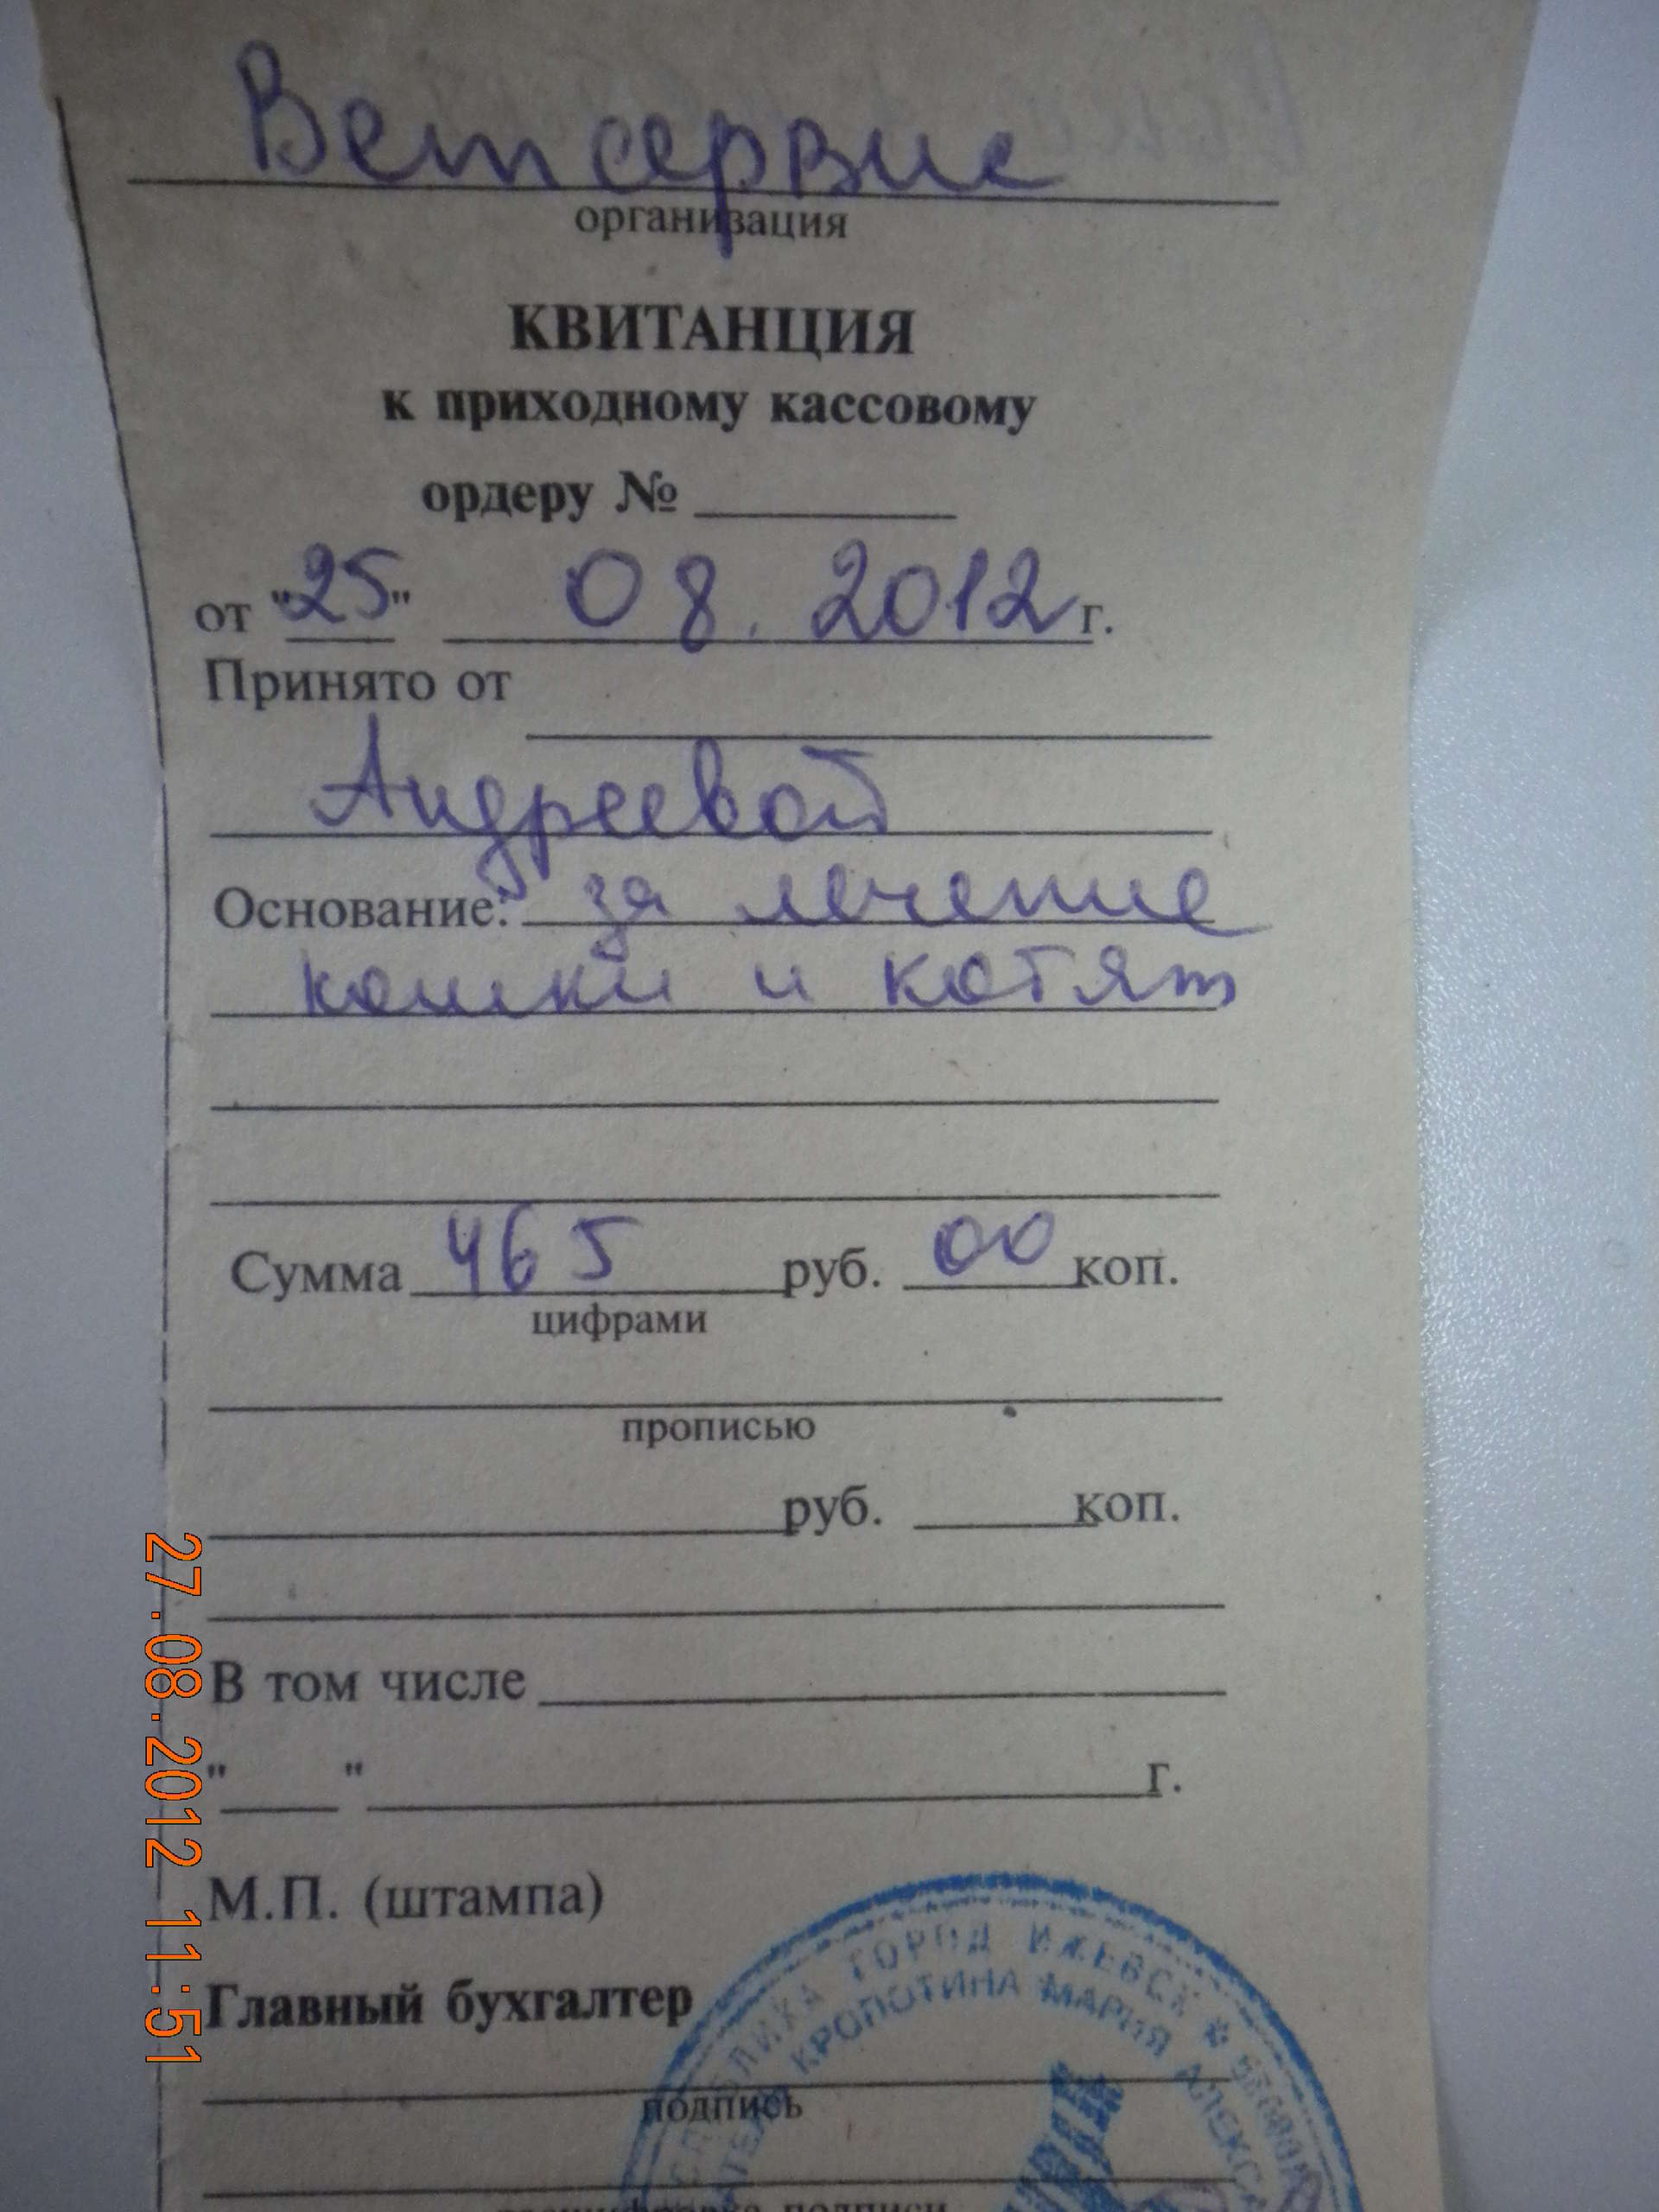 Ветсервис
организация
КВИТАНЦИЯ
к приходному кассовому
ордеру №
от "25" 08. 2012 г.
Принято от
Андреевой
Основание: за лечение
кошки и котят
Сумма 465 руб. 00 коп.
цифрами
прописью
руб. коп.
В том числе
" " г.
М.П. (штампа)
Главный бухгалтер
подпись
ГОРОД ИЖЕВСК *
КРОПОТИНА МАРИЯ
27.08.2012 11:51